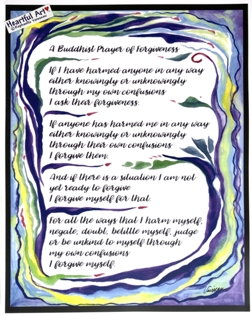 Heartful Art
A Buddhist Prayer of Forgiveness
If I have harmed anyone in any way
either knowingly or unknowingly
through my own confusions
I ask their forgiveness.
If anyone has harmed me in any way
either knowingly or unknowingly
through their own confusions
I forgive them.
And if there is a situation I am not
yet ready to forgive
I forgive myself for that.
For all the ways that I harm myself,
negate, doubt, belittle myself, judge
or be unkind to myself through
my own confusions
I forgive myself.